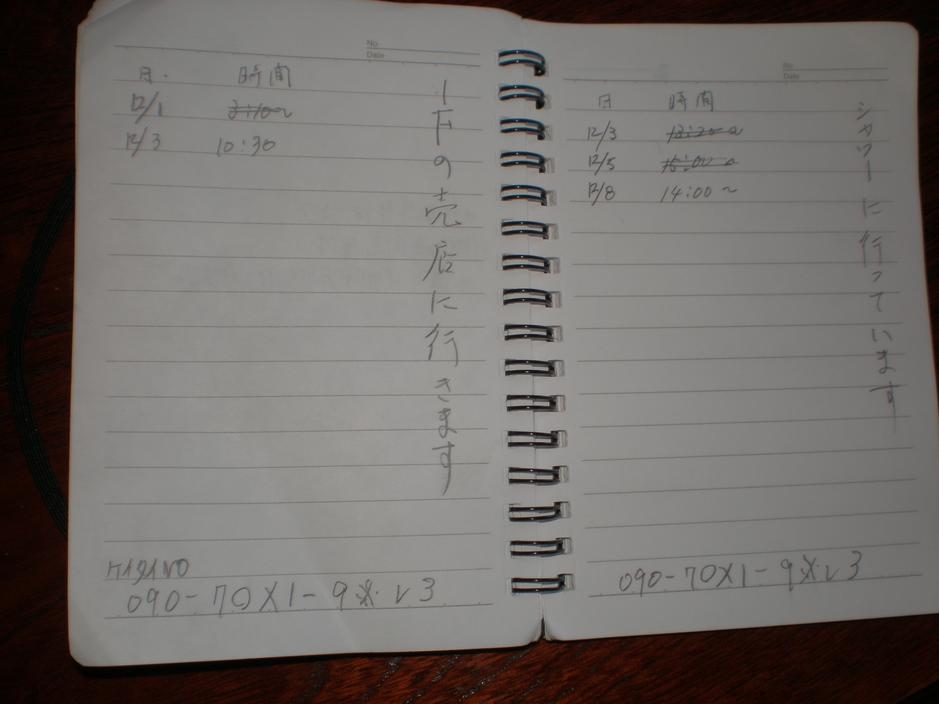 No.
Date
日. 時間
12/1
12/3 10:30
1Fの売店に行きます
ケイタイNO
090-70X1-9
No.
Date
日 時間
12/3 13:20~
12/5 15:00~
12/8 14:00~
シャワーに行っています
090-70X1-9